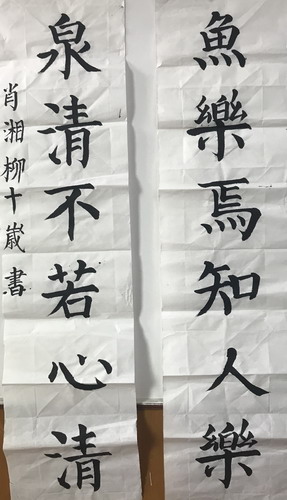 魚樂焉知人樂
泉清不若心清
肖湘柳十歲書